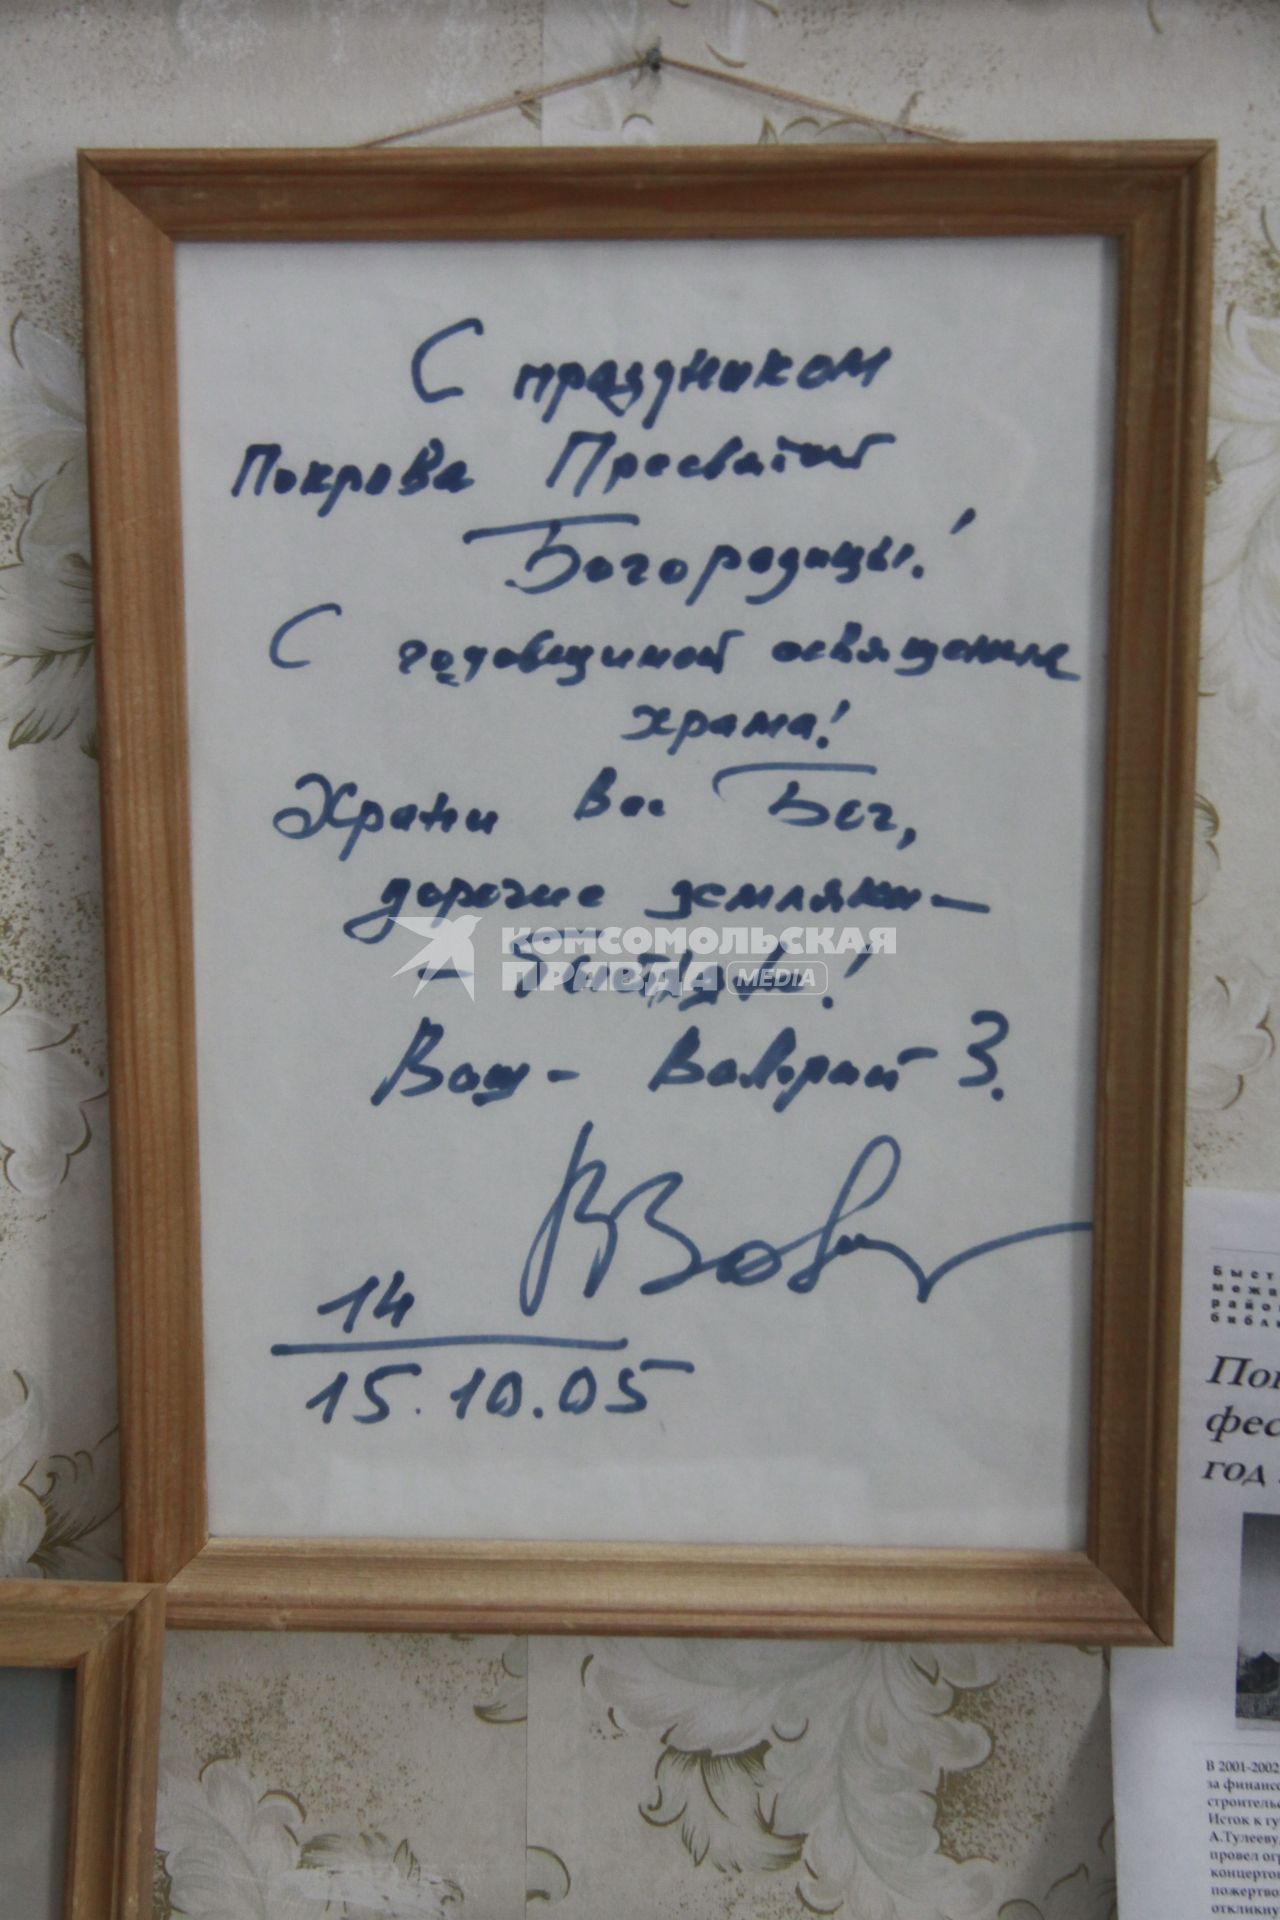 С праздником
Покрова Пресвятой
Богородицы!
С годовщиной освящения
храма!
Храни вас Бог,
дорогие земляки —
Ваш - Валерий З.
14
15.10.05
КОМСОМОЛЬСКАЯ
ПРАВДА MEDIA
Быст
межп
райо
библи
По
фес
год
В 2001-2002
за финанс
строительс
Исток к гу
А.Тулееву,
провел огр
концертов
пожертво
откликну